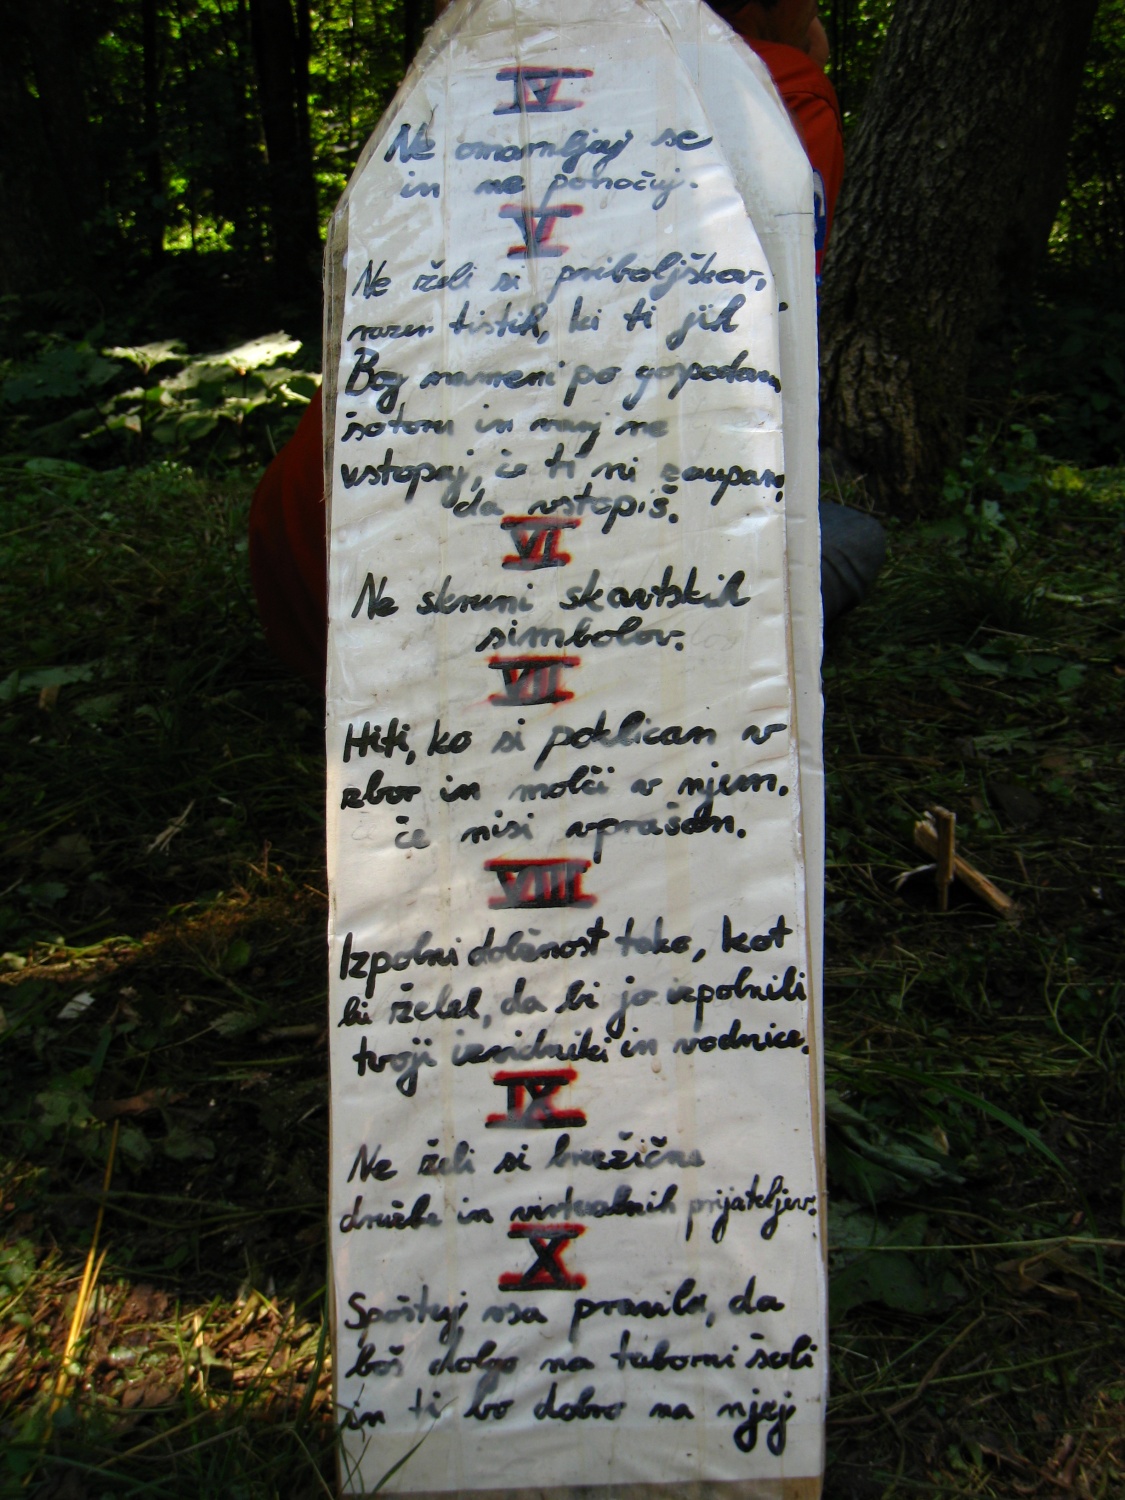 IV
Ne omamljaj se
in ne ponočuj.
V
Ne želi si priboljškov,
razen tistih, ki ti jih
Bog nameni po gospodom,
šotoru in vanj ne
vstopaj, če ti ni zaupano,
da vstopiš.
VI
Ne skruni skavtskih
simbolov.
VII
Hiti, ko si poklican v
zbor in molči v njem,
če nisi vprašan.
VIII
Izpolni dolžnost tako, kot
bi želel, da bi jo izpolnili
tvoji izvidniki in vodnice.
IX
Ne želi si brezžične
družbe in virtualnih prijateljev.
X
Spoštuj vsa pravila, da
boš dolgo na taborni šoli
in ti bo dobro na njej